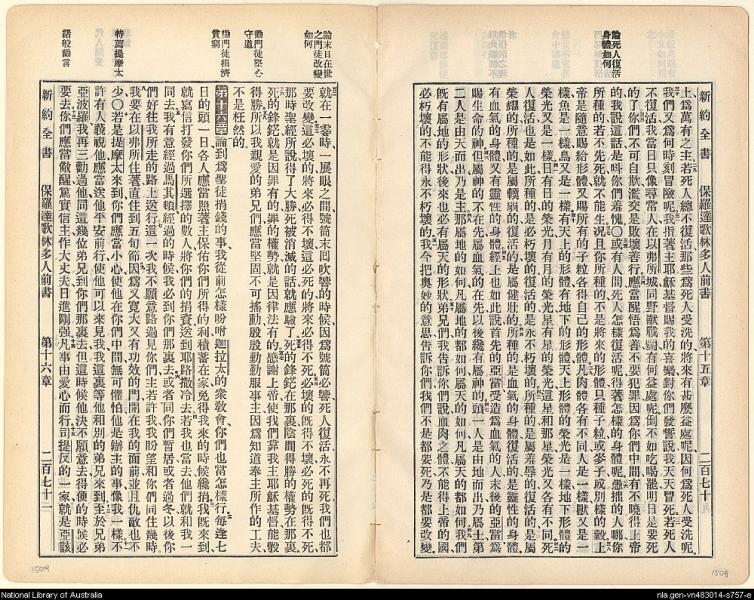 論死人復活
身體如何
新約全書
保羅達歌林多人前書
第十五章
上爲萬有之主若死人總不復活那些爲死人受洗的將來有甚麼益處呢因何爲死人受洗呢
我們又爲何時刻冒險呢我指着主耶穌基督賜我的喜樂對你們發誓說我天天冒死若死人
不復活我當日只像尋常人在以弗所城同野獸戰鬪有何益處呢倒不如吃喝罷明日是要死
的了你們不可自欺濫交是敗壞善行應當醒悟爲善不要犯罪因爲你們中間有不曉得上帝
的我說這話是呌你們羞愧○或有人問死人怎樣復活呢得著怎樣的身體呢愚拙的人哪你
所種的若不先死就不能生況且你所種的不是將來的形體只種子粒或麥子或別樣的穀上
帝是隨意賜給形體又賜所有的子粒各得自己的形體凡肉體各有不同人是一樣獸又是一
樣魚是一樣鳥又是一樣有天上的形體有地下的形體天上形體的榮光是一樣地下形體的
榮光又是一樣日有日的榮光月有月的榮光星有星的榮光這星和那星榮光又各有不同死
人復活也是如此所種的是必朽壞的復活的是永不朽壞的所種的是羞辱的復活的是
榮耀的所種的是軟弱的復活的是健壯的所種的是血氣的身體復活的是靈性的身體
有血氣的身體又有靈性的身體經上也如此說首先的亞當受造爲血氣的人末後的亞當爲
賜生命的神但屬神的不在先屬血氣的在先以後纔有屬神的頭一人是由地而出乃屬土第
二人是由天而出乃是主那屬地的如何凡屬地的都如何屬天的如何凡屬天的都如何我們
既有屬地的形狀後來也必有屬天的形狀弟兄們我告訴你們說血肉之體不能得上帝的國
必朽壞的不能得永不朽壞的我今把奧妙的意思告訴你們我們不是都要死乃是都要改變
論末日在世
之門徒改變
如何
勸門徒堅心
守道
勸門徒捐濟
貧窮
特薦提摩太
諸般勸言
新約全書
保羅達歌林多人前書
第十六章
就在一霎時一展眼之間號筒末囘吹響的時候因爲號筒必響死人復活永不再死我們也都
要改變這必壞的將來必得不壞這必死的將來必得不死必壞的既得不壞必死的既得不死
那時聖經所說得了大勝死被消滅的話就應驗了死的鋒鋩在那裏陰間得勝的權勢在那裏
死的鋒鋩就是因罪有的罪的權勢就是因律法有的感謝上帝使我們靠我主耶穌基督能彀
得勝所以我親愛的弟兄們應當堅固不可搖動殷殷勤勤服事主因爲知道奉主所作的工夫
不是枉然的
第十六章論到爲聖徒捐錢的事我從前怎樣吩咐迦拉太的衆敎會你們也當怎樣行每逢七
日的頭一日各人應當照著主保佑你們所得的利積蓄在家免得我來的時候纔捐我既來到
就寫信打發你們所選擇的數人將你們的捐資送到耶路撒冷去若我也當去他們就和我一
同去我有意經過馬其頓經過的時候我必到你們那裏去或者同你們暫居或者過冬以後你
們好往我所走的路上送行這一次我不願意路過見你們主若許我我盼望和你們同住幾時
我要在以弗所住著直住到五旬節因爲又寬大又有功效的門開在我的面前並且仇敵也不
少○若是提摩太來到你們應當小心使他在你們中間無可懼怕他是辦主的事像我一樣不
許有人藐視他應當送他平安前行使他可以來見我我這裏等他和別的弟兄來到至於兄弟
亞波羅我再三勸過他同這幾位弟兄到你們那裏去但這時候他決不願意去得便的時候必
要去你們應當儆醒爲實信主作大丈夫日進剛强凡事由愛心而行司提反的一家就是亞該
National Library of Australia
nla.gen-vn483014-s757-e